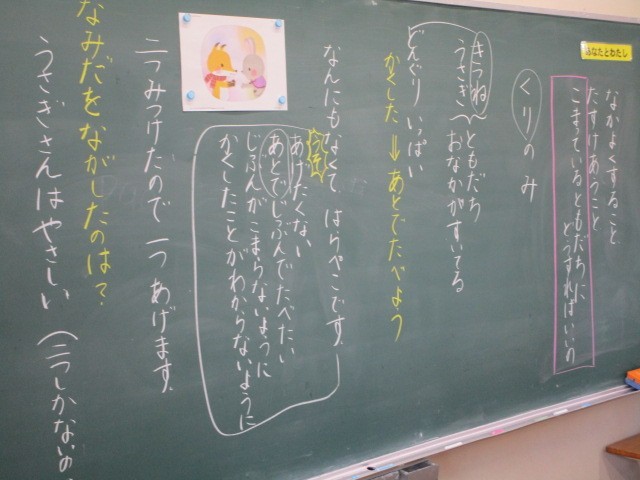 あなたとわたし
なかよくすること
たすけあうこと
こまっているともだちに
どうすればいいの
くりのみ
きつね
うさぎ
ともだち
おなかがすいてる
どんぐり いっぱい
かくした ⇒ あとでたべよう
なんにもなくて はらぺこです。
うそ
あげたくない
あとでじぶんでたべたい
じぶんがこまらないように
かくしたことがわからないように
二つみつけたので 一つ あげます。
なみだをながしたのは？
うさぎさんは やさしい (二つしかないの